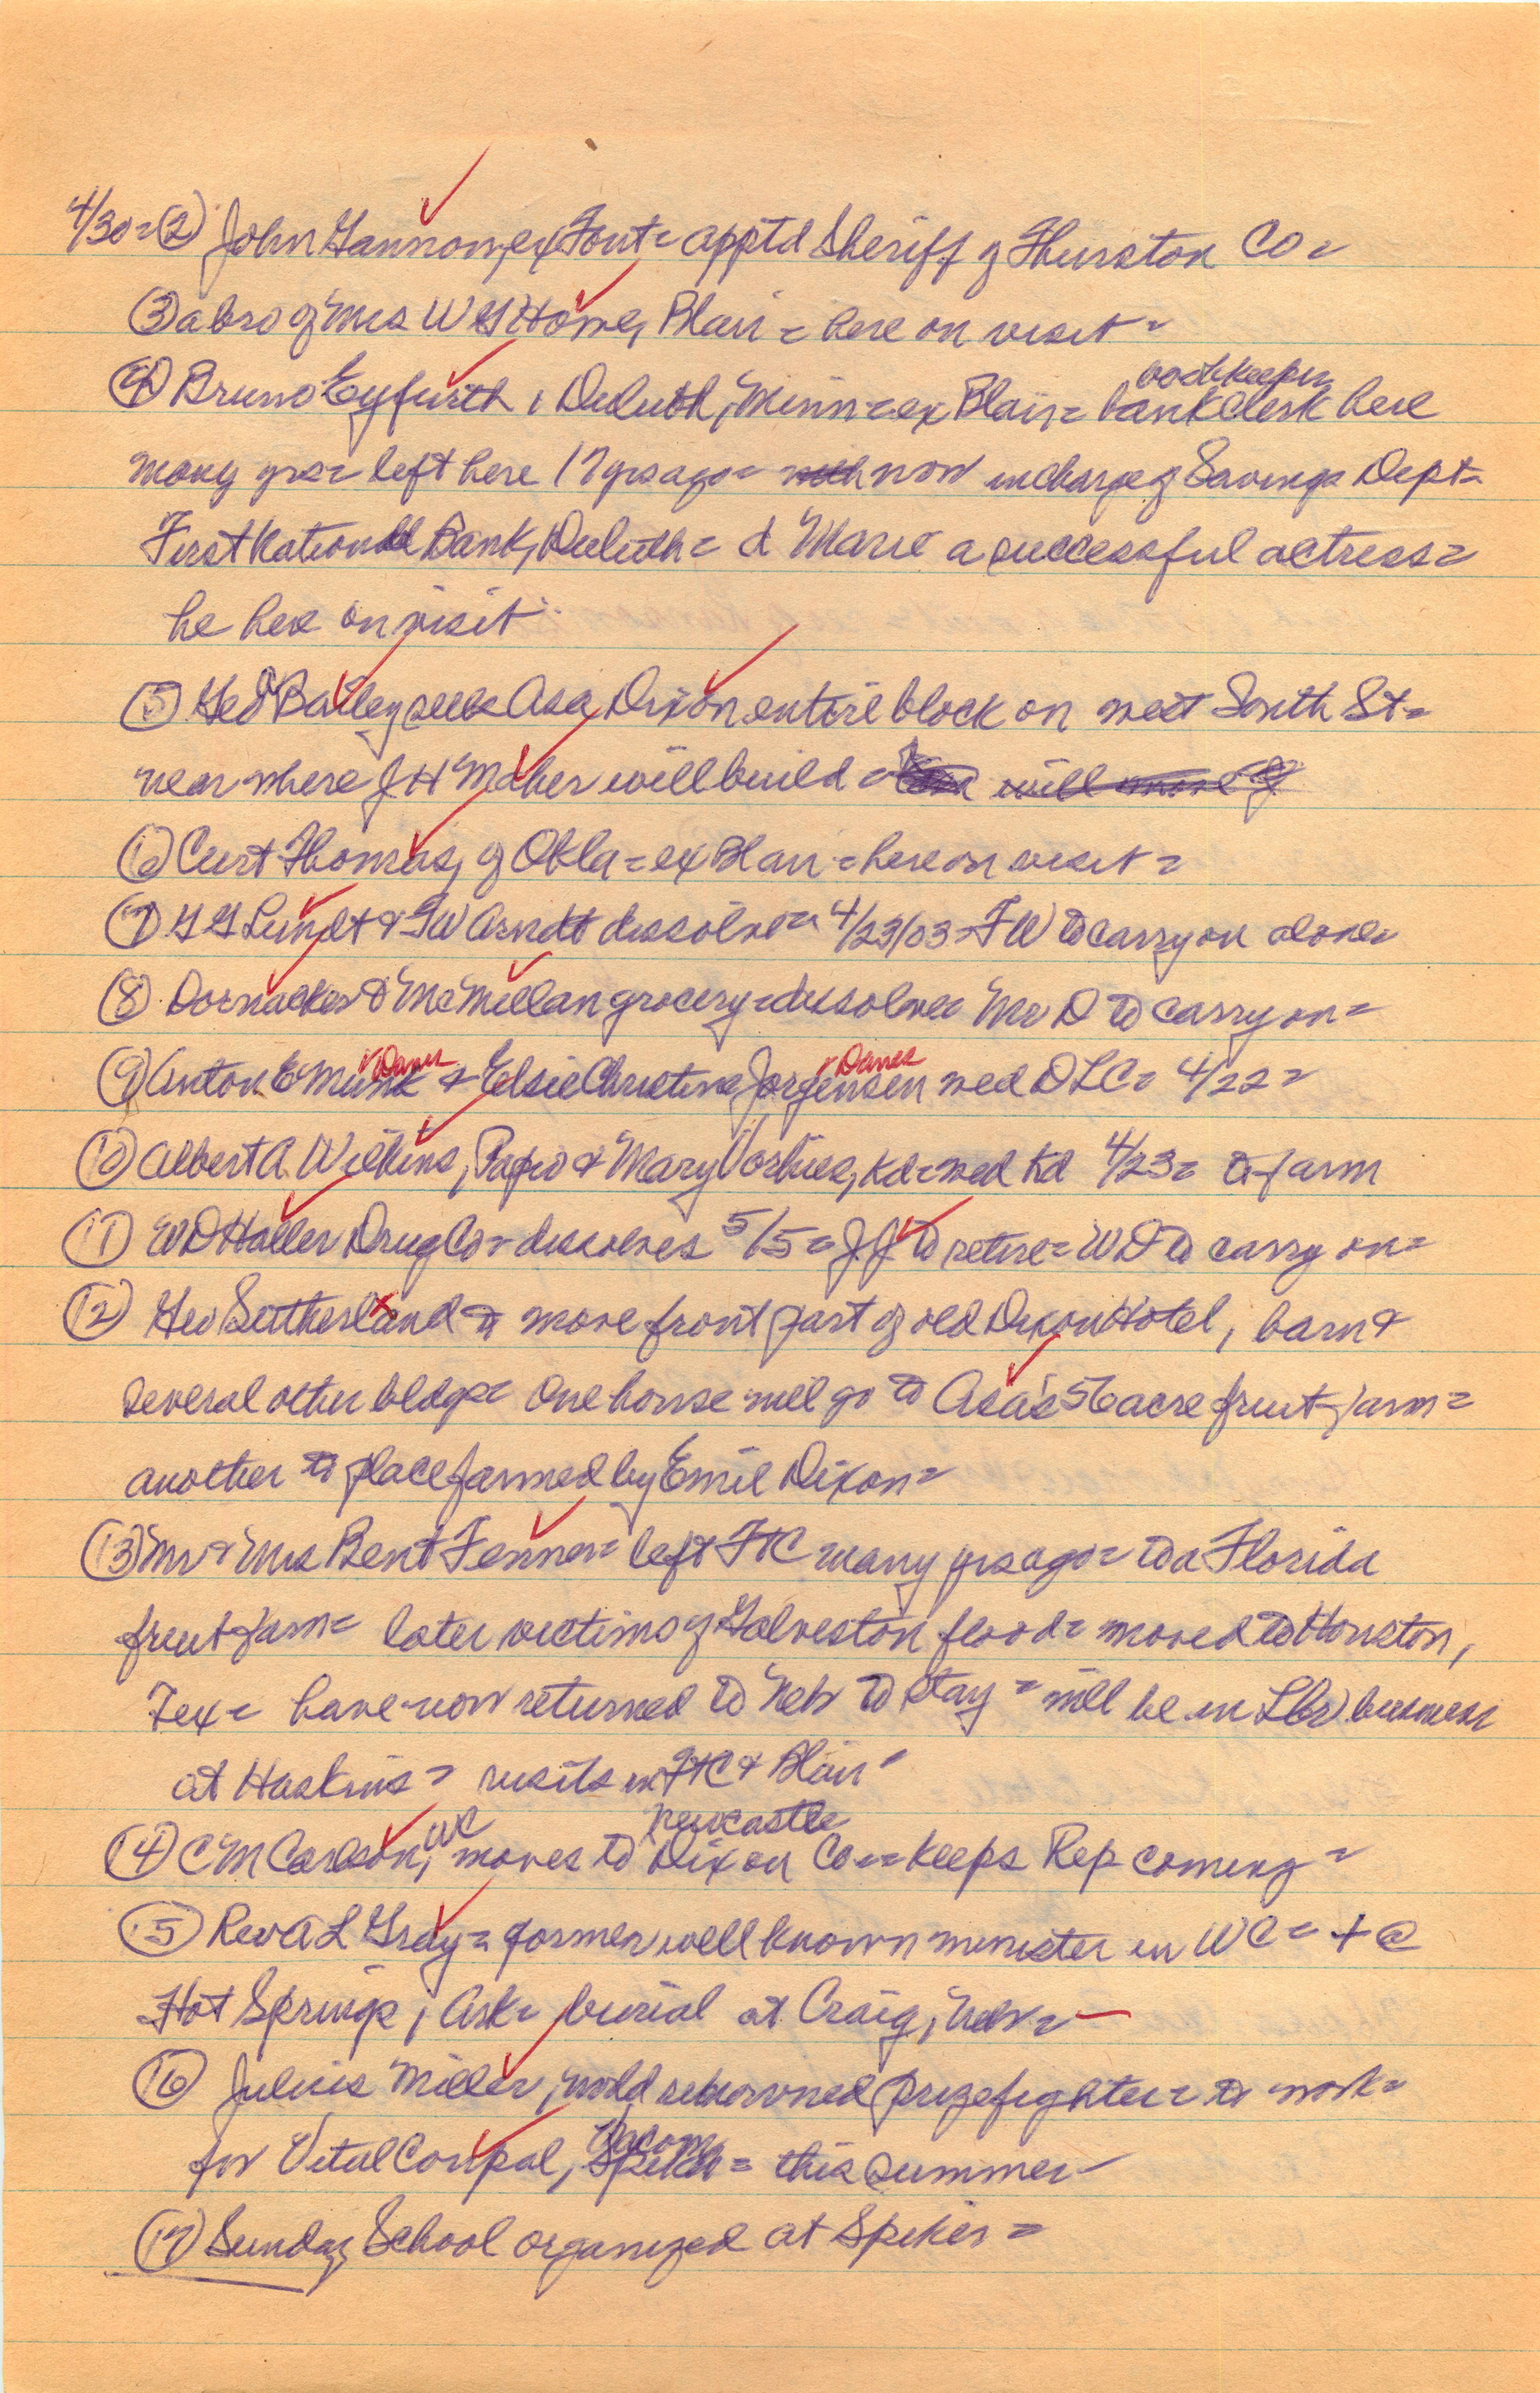 4/30= (2) John Gannon, ex Font= apptd Sheriff of Thurston Co=
(3) a bro of Mrs W G Howe, Blair= here on visit=
bookkeeper
(4) Bruno Eyfurth, Duluth, Minn= ex Blair= bank clerk here
many yrs= left here 17 yrs ago= now in charge of Savings Dept=
First National Bank, Duluth= d Marie a successful actress=
he here on visit
(5) Geo Bailey sells Asa Dixon entire block on west South St=
near where J H Maher will build= will move
(6) Curt Thomas, of Okla= ex Blair= here on visit=
(7) G G Lundt & F W Arndt dissolve= 4/23/03= F W to carry on alone=
(8) Dornacker & McMillan grocery= dissolve= Mr D to carry on=
Danes Danes
(9) Anton E Munk & Elsie Christine Jorgensen wed DLC= 4/22=
(10) Albert A Wilkins, Papio & Mary Vorhies, Kd= wed Kd 4/23= to farm
(11) W D Haller Drug Co= dissolves 5/5= J J to retire= W D to carry on=
(12) Geo Sutherland to move front part of old Dixon Hotel, barn &
several other bldgs= One house will go to Asa's 56 acre fruit farm=
another to place farmed by Emil Dixon=
(13) Mr & Mrs Bent Fenner= left FtC many yrs ago= to a Florida
fruit farm= later victims of Galveston flood= moved to Houston,
Tex= have now returned to Neb to stay= will be in Lbr business
at Haskins= visits in FtC & Blair=
WC Newcastle
(14) C M Carlson, moves to Dixon Co= keeps Rep coming=
(15) Rev A L Gray= former well known minister in WC= + @
Hot Springs, Ark= burial at Craig, Neb=
(16) Julius Miller, world renowned prizefighter= to work=
Bacom
for Vital Compal, Spiker= this summer
(17) Sunday School organized at Spiker=